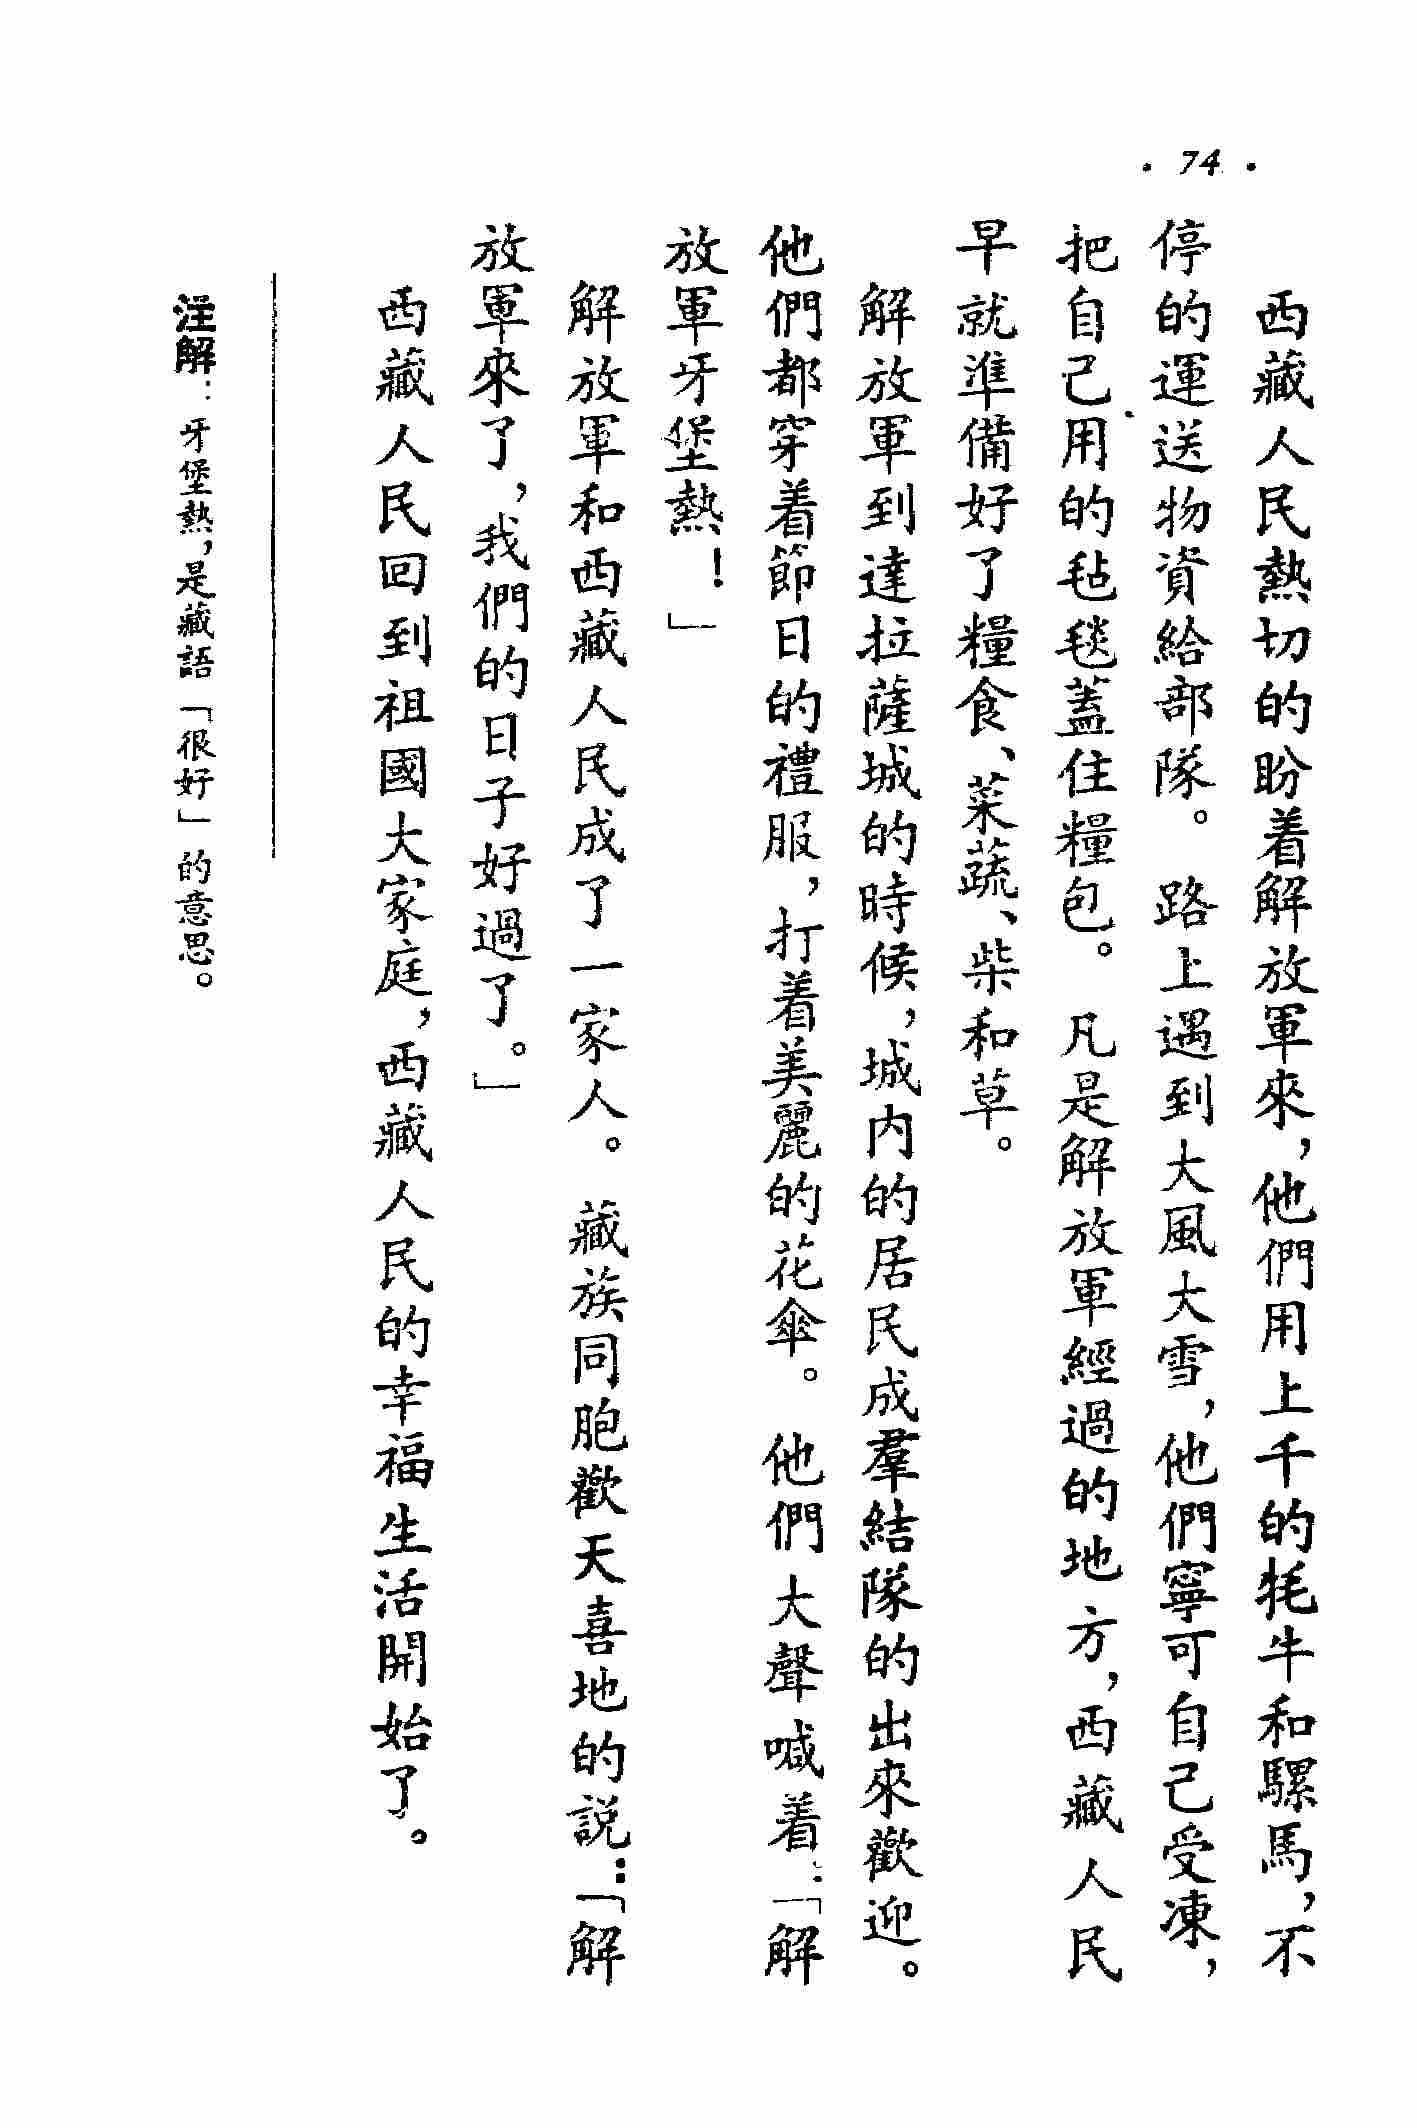 · 74 ·
西藏人民熱切的盼着解放軍來，他們用上千的牦牛和騾馬，不
停的運送物資給部隊。路上遇到大風大雪，他們寧可自己受凍，
把自己用的毡毯蓋住糧包。凡是解放軍經過的地方，西藏人民
早就準備好了糧食、菜蔬、柴和草。
解放軍到達拉薩城的時候，城内的居民成羣結隊的出來歡迎。
他們都穿着節日的禮服，打着美麗的花傘。他們大聲喊着：「解
放軍牙堡熱！」
解放軍和西藏人民成了一家人。藏族同胞歡天喜地的説：「解
放軍來了，我們的日子好過了。」
西藏人民回到祖國大家庭，西藏人民的幸福生活開始了。
注解：牙堡熱，是藏語「很好」的意思。